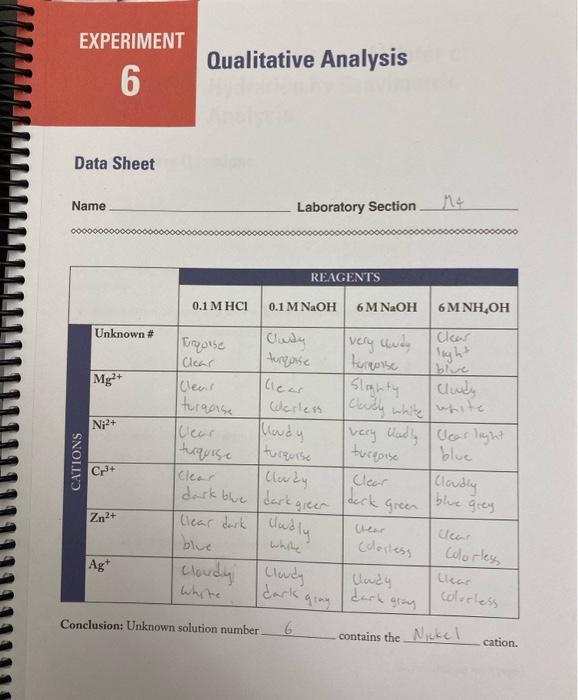 EXPERIMENT
6
Qualitative Analysis
Data Sheet
Name Laboratory Section M4
REAGENTS
0.1 M HCl 0.1 M NaOH 6 M NaOH 6 M NH₄OH
CATIONS
Unknown #
Turqoise Clear
Cloudy turqoise
very cloudy turqoise
Clear light blue
Mg²⁺
Clear turqoise
Clear Colorless
Slighty Cloudy white
Cloudy white
Ni²⁺
Clear turqoise
Cloudy turquise
very cloudly turqoise
Clear light blue
Cr³⁺
Clear dark blue
Cloudy dark green
Clear dark green
Cloudly blue grey
Zn²⁺
Clear dark blue
Cloudly white
Clear Colorless
Clear Colorless
Ag⁺
Cloudy white
Cloudy dark gray
Cloudy dark gray
Clear colorless
Conclusion: Unknown solution number 6 contains the Nickel cation.